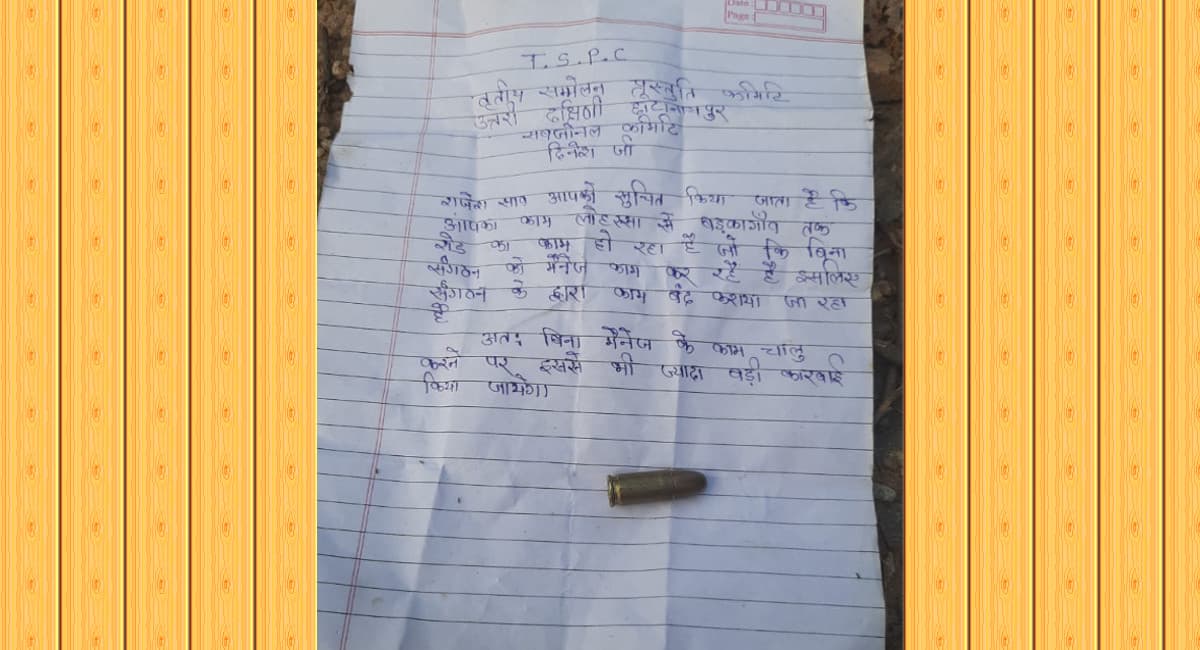 Date :
Page :
T.S.P.C
तृतीय सम्मेलन प्रस्तुति कमिटि
उत्तरी दक्षिणी छोटानागपुर
सबजोनल कमिटि
दिनेश जी
राजेश साव आपको सुचित किया जाता है कि
आपका काम लोहरसा से बड़कागाँव तक
रोड का काम हो रहा है जो कि बिना
संगठन को मैनेज काम कर रहे है इसलिए
संगठन के द्वारा काम बंद कराया जा रहा
है
अतः बिना मैनेज के काम चालु
करने पर इससे भी ज्यादा बड़ी कारवाई
किया जायेगा